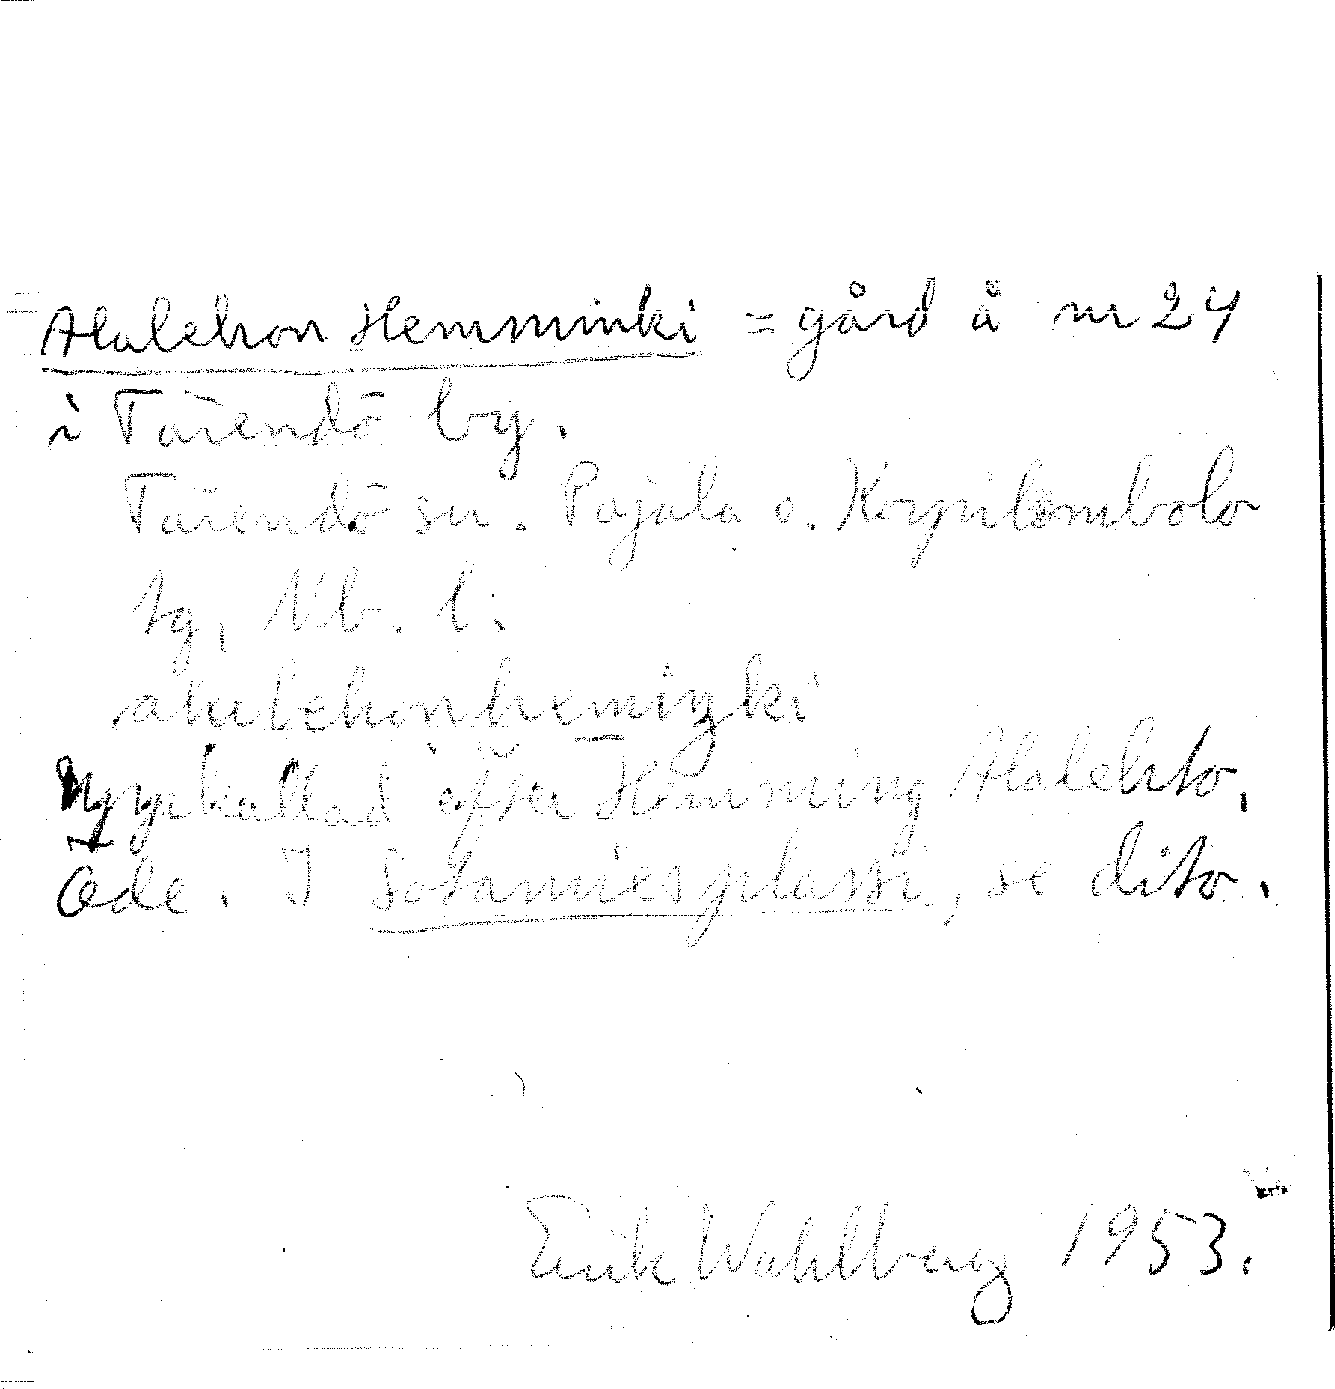 Alalehon Hemminki = gård å nr 24
i Tärendö by.
Tärendö sn. Pajala o. Korpilombolo
tg, Nb. l.
alalehonhemiŋki
Uppkallad efter Hemming Alalehto.
Öde. I Sotamiesplassi, se dito.
Erik Wahlberg 1953.